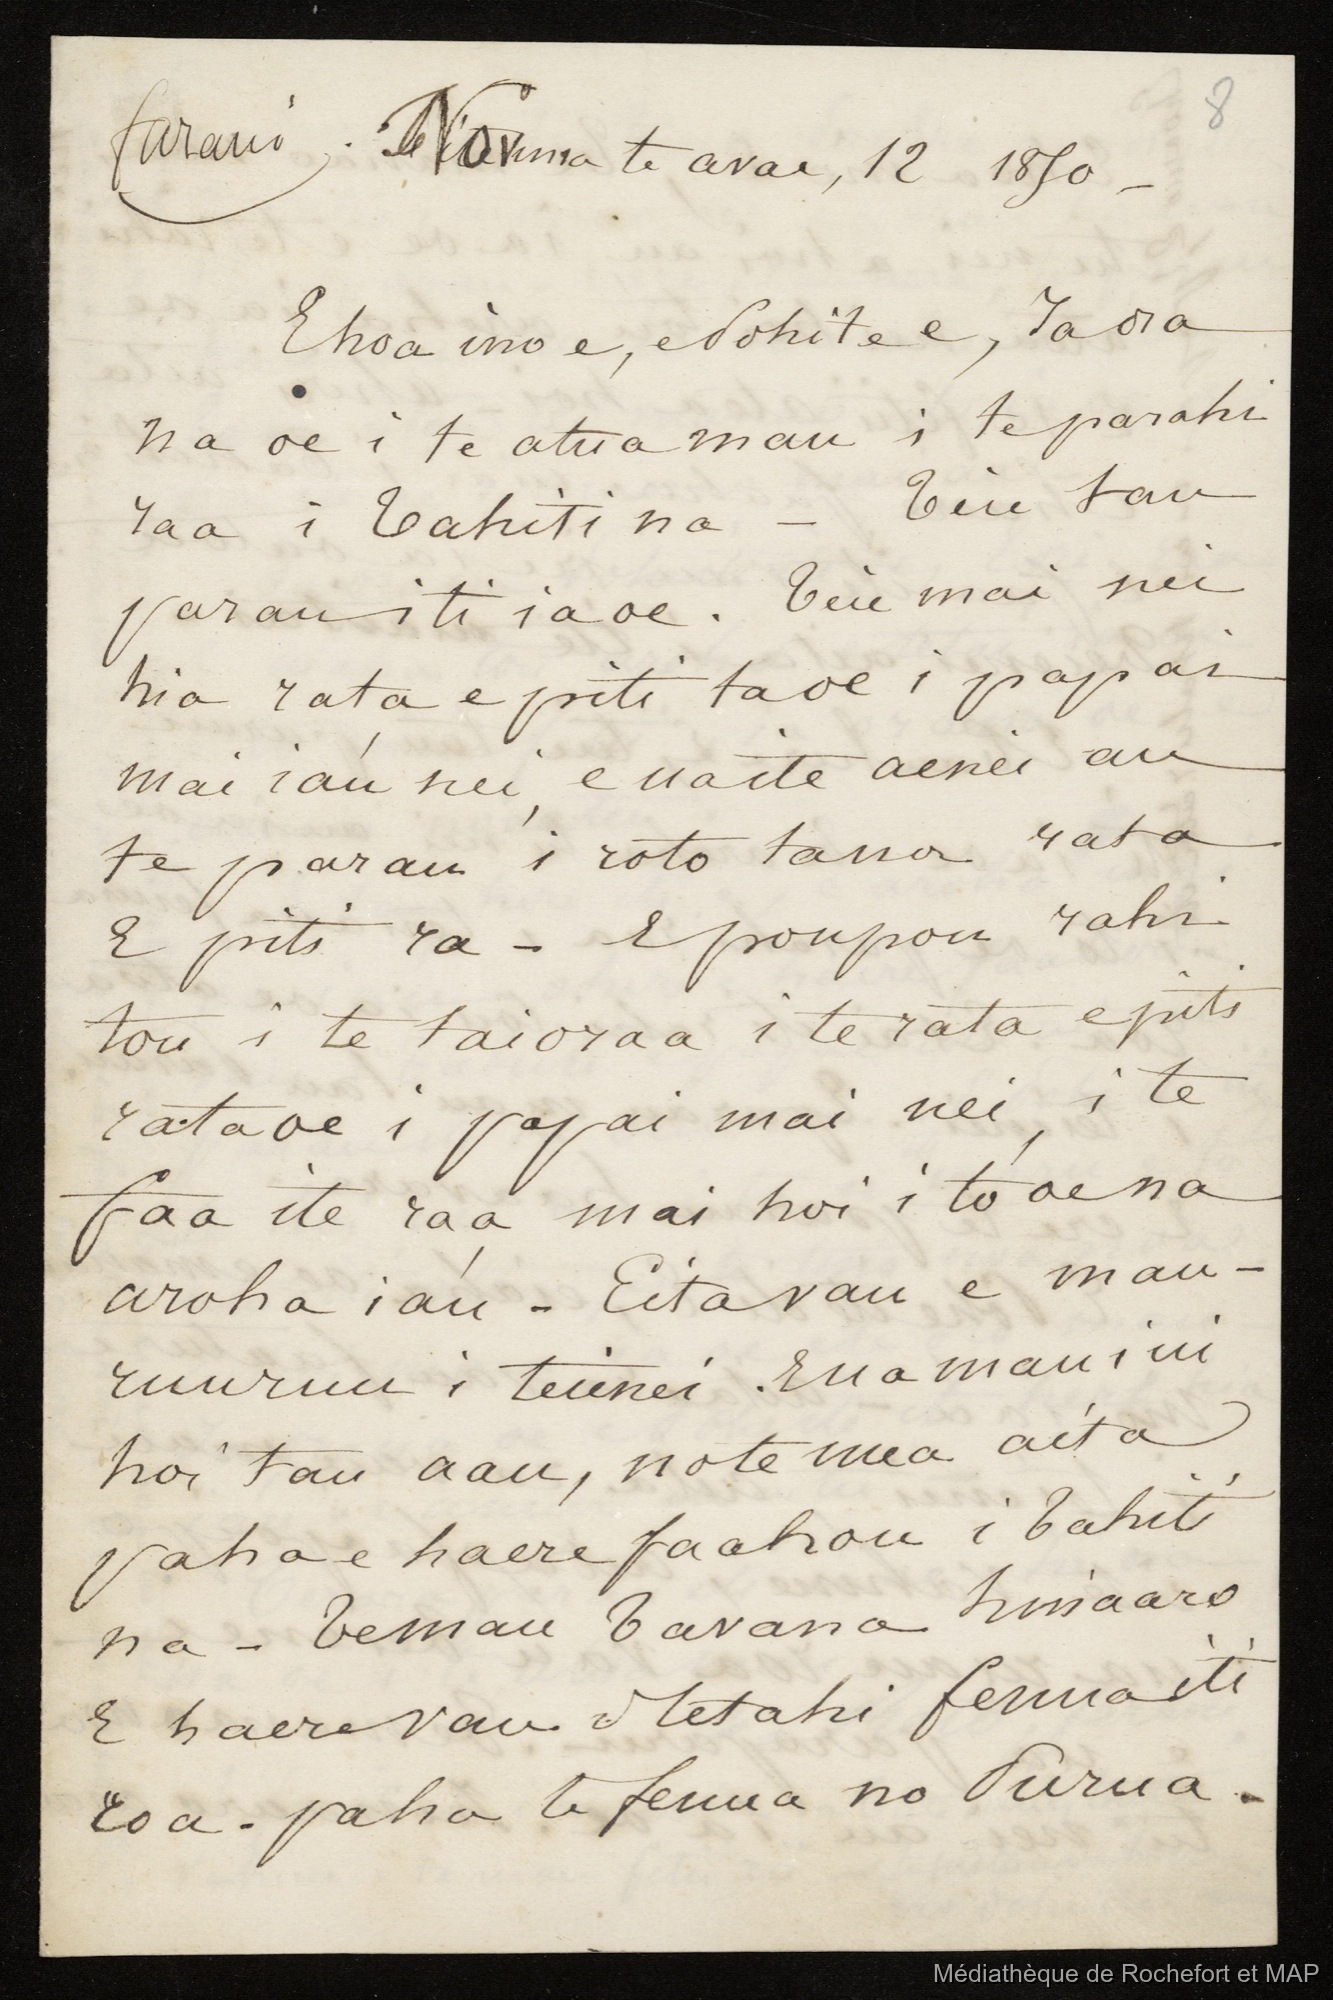 8
farani. Novema te avae, 12 1850 -
E hoa ino e, e Pohite e, Ia ora
na oe i te atua mau i te parahi
raa i Tahiti na - Teie tau
parau iti ia oe. Teie mai nei
hia rata e piti ta oe i papai
mai iáu nei, e ua ite aenei au
te parau i roto tana rata
E piti ra - E poupou rahi
tou i te taioraa i te rata e piti
rataoe i papai mai nei, i te
faa ite raa mai hoi i tó oe na
aroha iáu - Eita vau e mau-
ruuruu i teienei. E ua mauiui
hoi tau aau, no te mea aita
paha e haere faahou i Tahiti
na - Te mau Tavana hinaaro
E haere vau i te tahi fenua iti
roa - paha te fenua no Purua.
Médiathèque de Rochefort et MAP